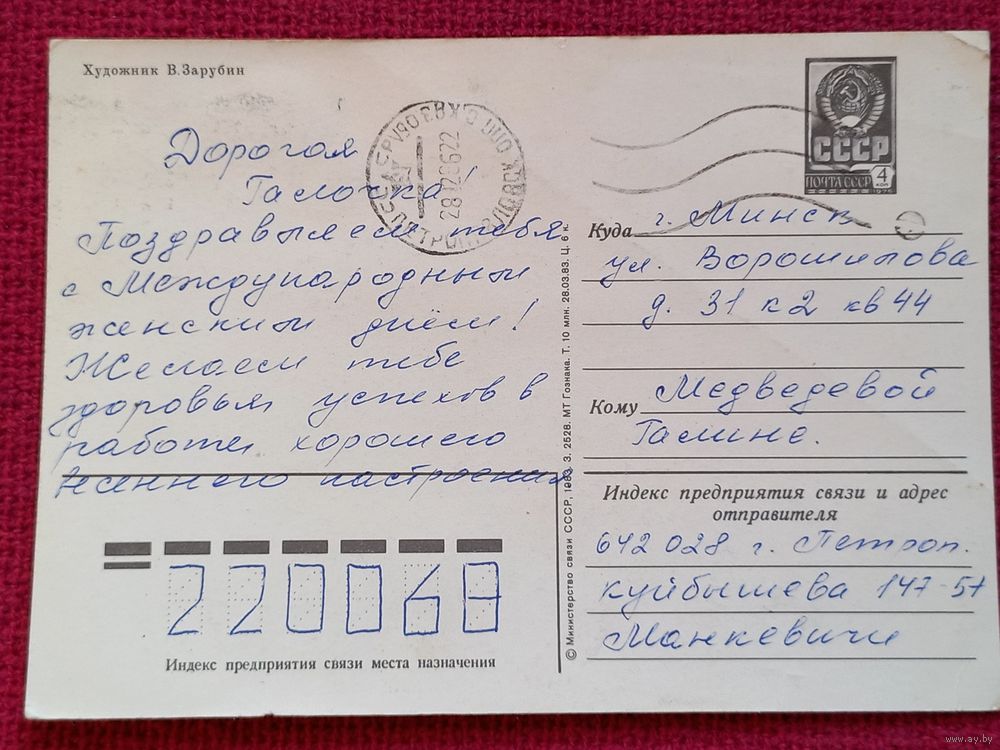 Художник В.Зарубин
Дорогая
Галочка!
Поздравляем тебя
с Международным
женским днём!
Желаем тебе
здоровья, успехов в
работе, хорошего
весеннего настроения
СССР
ПОЧТА СССР
4
коп
1976
Куда г. Минск
ул. Ворошилова
д. 31 к 2 кв 44
Кому Медведевой
Галине.
Индекс предприятия связи и адрес
отправителя
642028 г. Петроп.
Куйбышева 147-57
Манкевичи
220068
Индекс предприятия связи места назначения
© Министерство связи СССР, 1983. З. 2528. МТ Гознака. Т. 10 млн. 28.03.83. Ц. 6 к.
www.ay.by